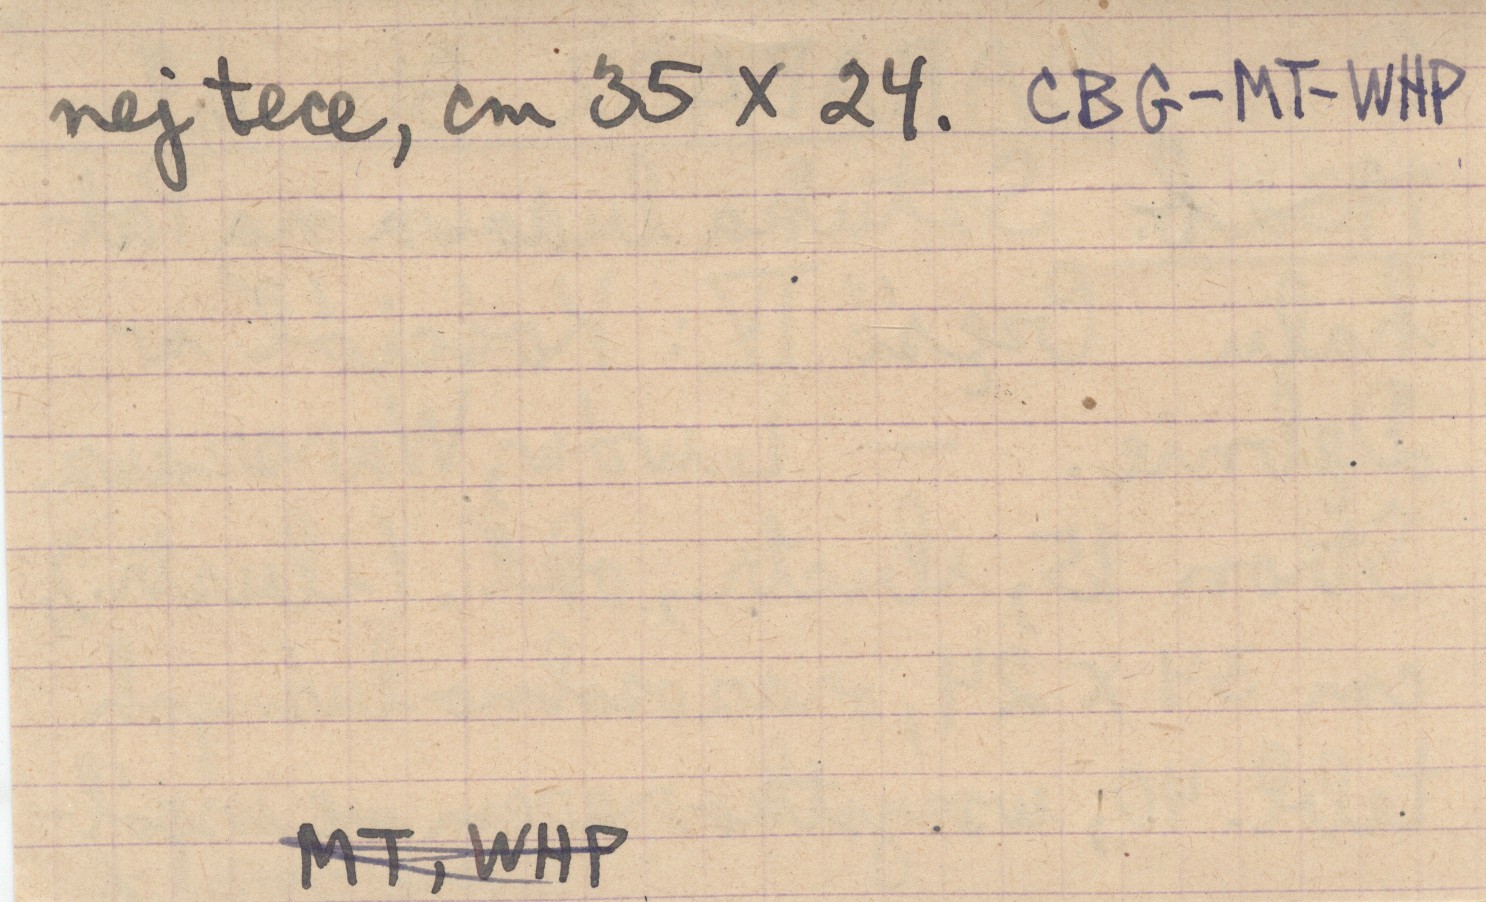 nej tece, cm 35 X 24. CBG-MT-WHP
MT, WHP